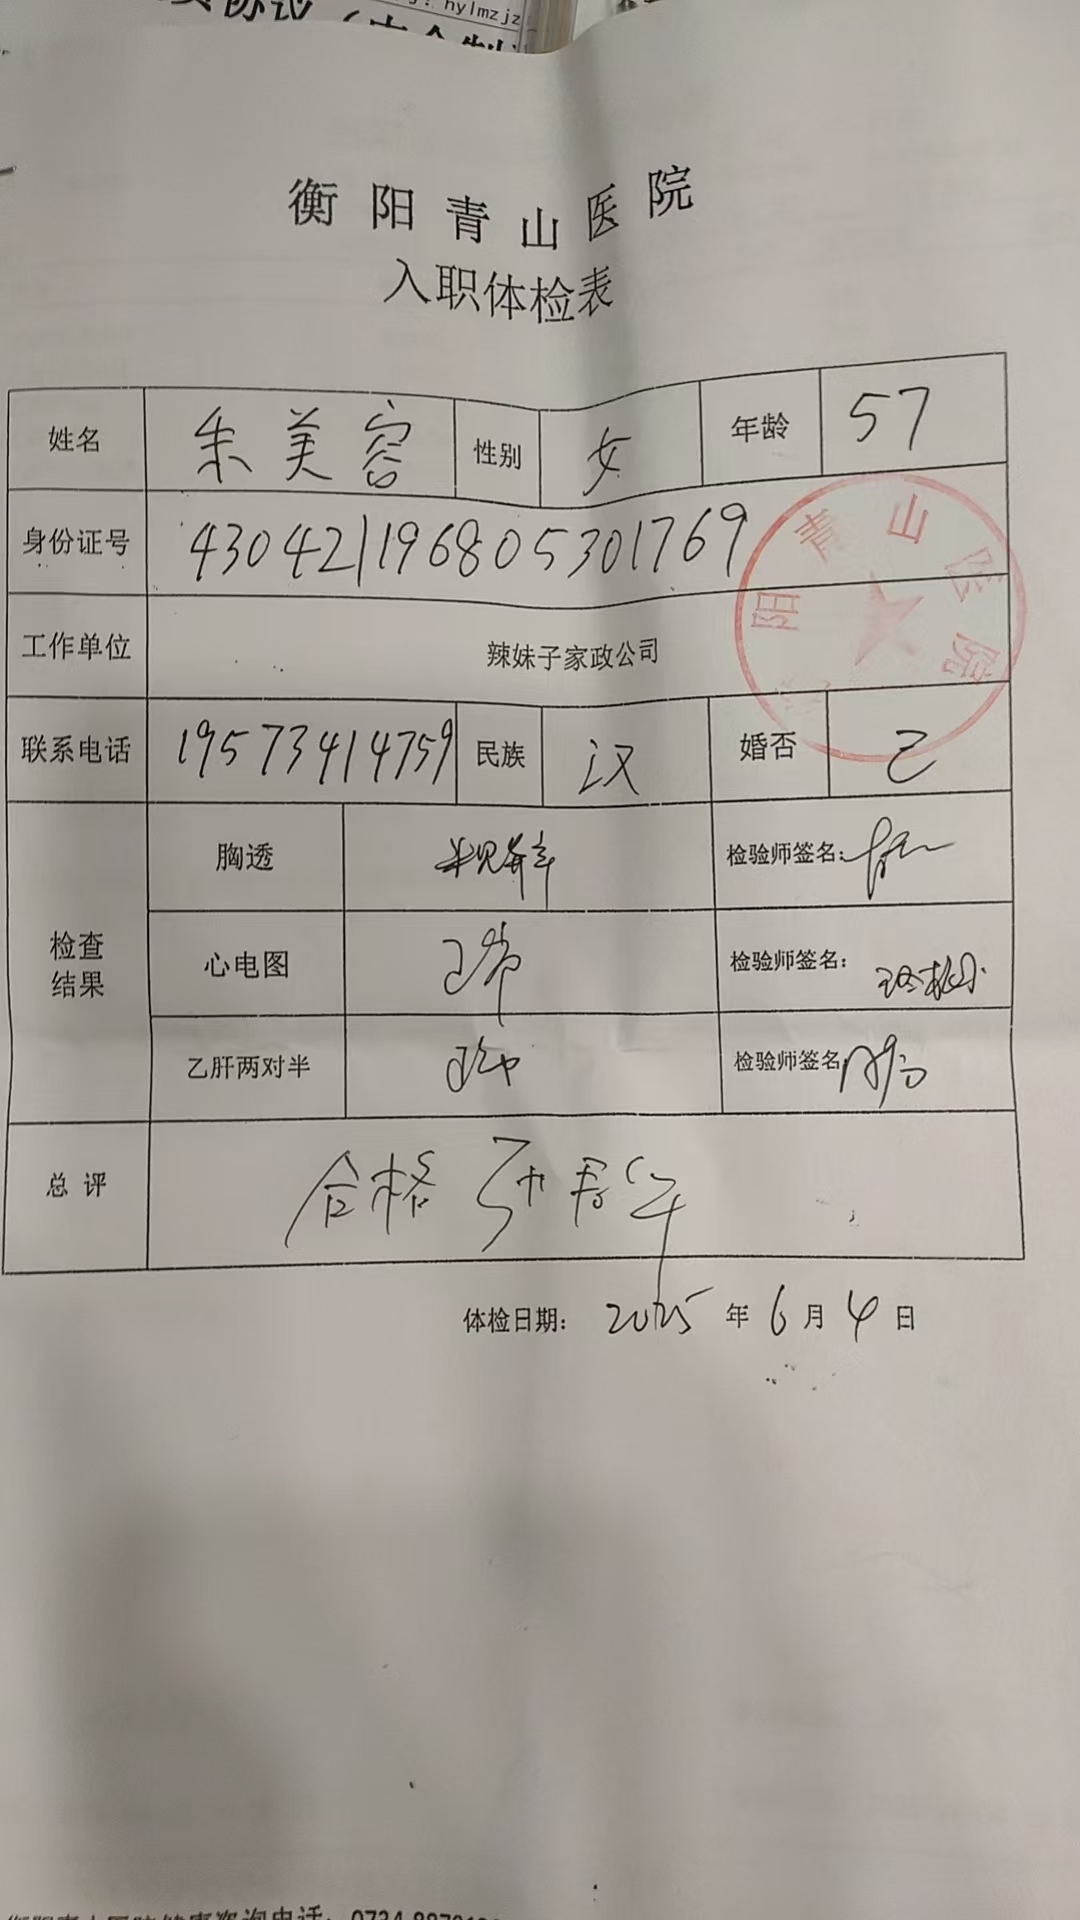 hylmzjz
衡阳青山医院
入职体检表
姓名 朱美容 性别 女 年龄 57
身份证号 430421196805301769
工作单位 辣妹子家政公司
联系电话 19573414759 民族 汉 婚否 已
检查结果
胸透 未见异常 检验师签名:
心电图 正常 检验师签名:
乙肝两对半 正常 检验师签名
总评 合格
体检日期: 2025 年 6 月 4 日
阳青山医院